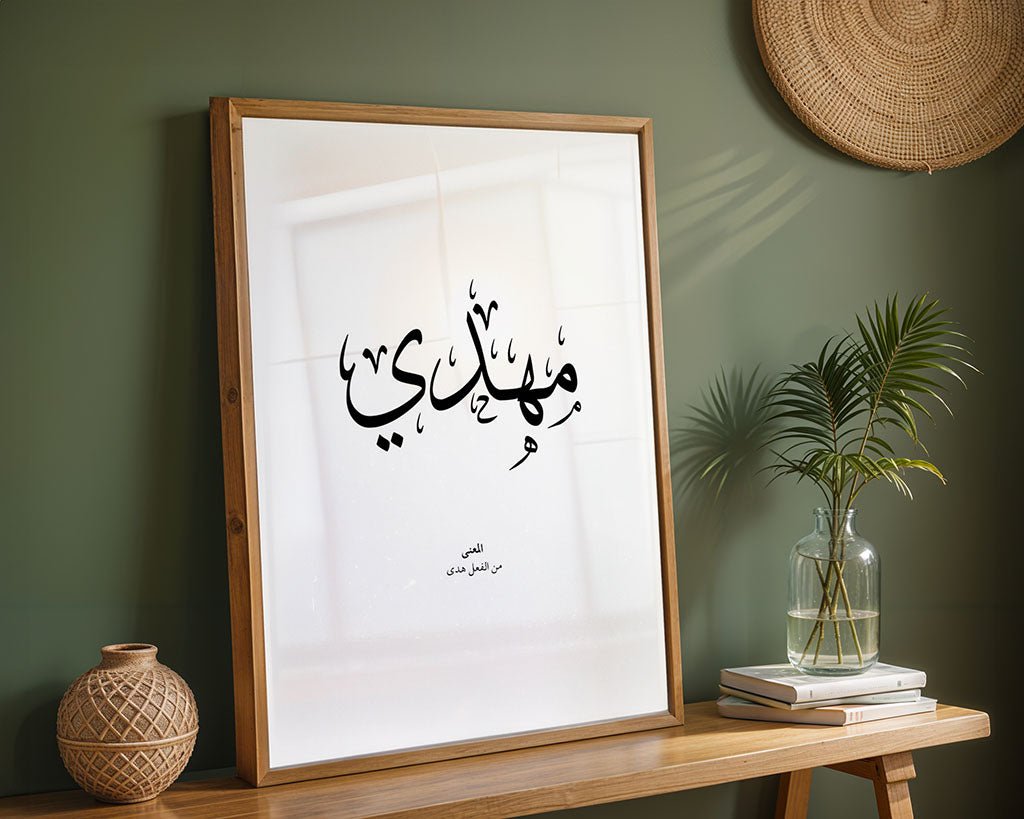 مهدي
المعنى
من الفعل هدى